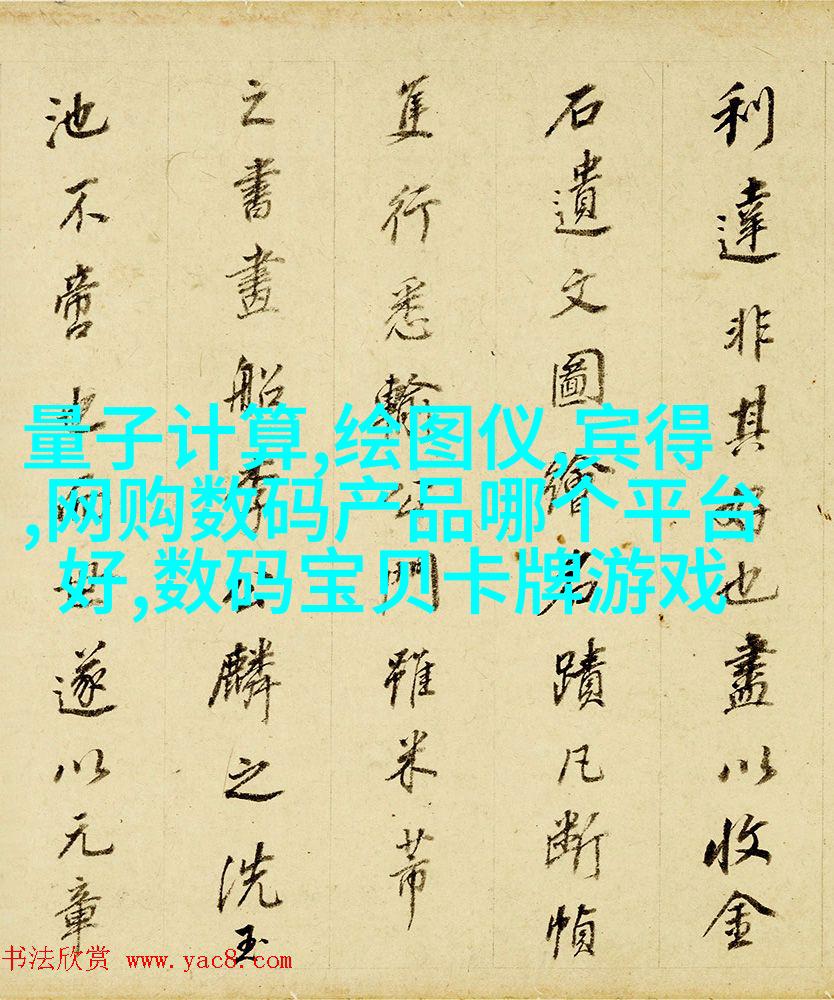 利達非其好也盡以收金
石遺文圖繪名蹟凡断幀
隻行悉輸公門雖米芾
之書畫船李公麟之洗玉
池不啻也而世遂以元章
量子计算,绘图仪,宾得
,网购数码产品哪个平台
好,数码宝贝卡牌游戏
书法欣赏 www.yac8.com